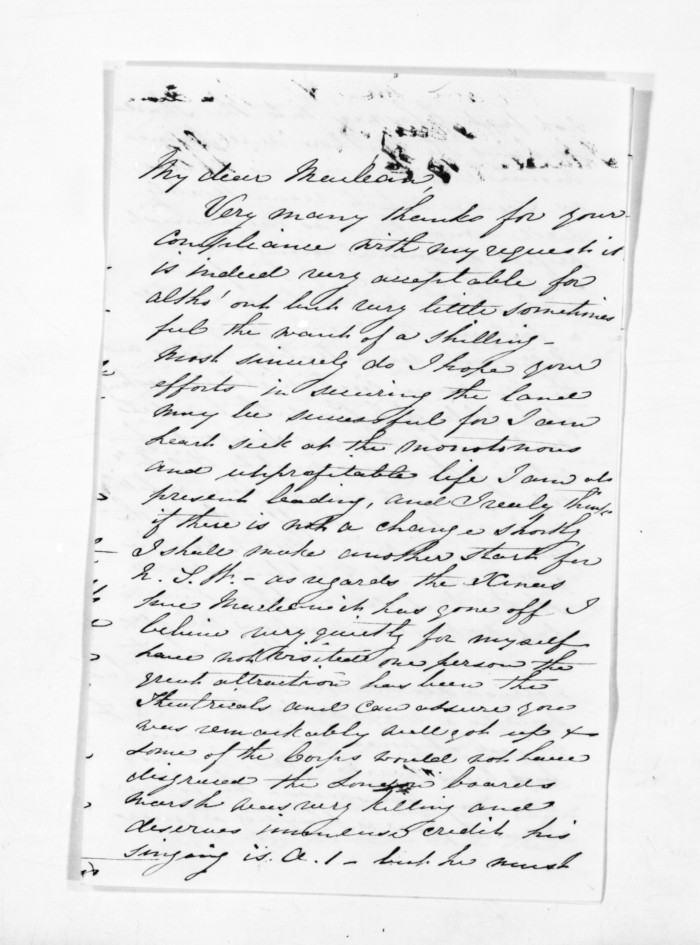 My dear Maclean,
Very many thanks for your
compliance with my request it
is indeed very acceptable for
altho' out but very little sometimes
feel the want of a shilling -
Most sincerely do I hope your
efforts in securing the land
may be successful for I am
heart sick at the monotonous
and unprofitable life I am at
present leading, and I realy think
if there is not a change shortly
I shall make another start for
N. S. W. - as regards the Xmas
time has gone off I
believe very quietly for myself
have not visited one person the
great attraction has been the
Theatricals and can assure you
was remarkably well got up &
some of the Corps would not have
disgraced the London boards
Marsh was very killing and
deserves immense credit his
singing is. A. 1 - but he must